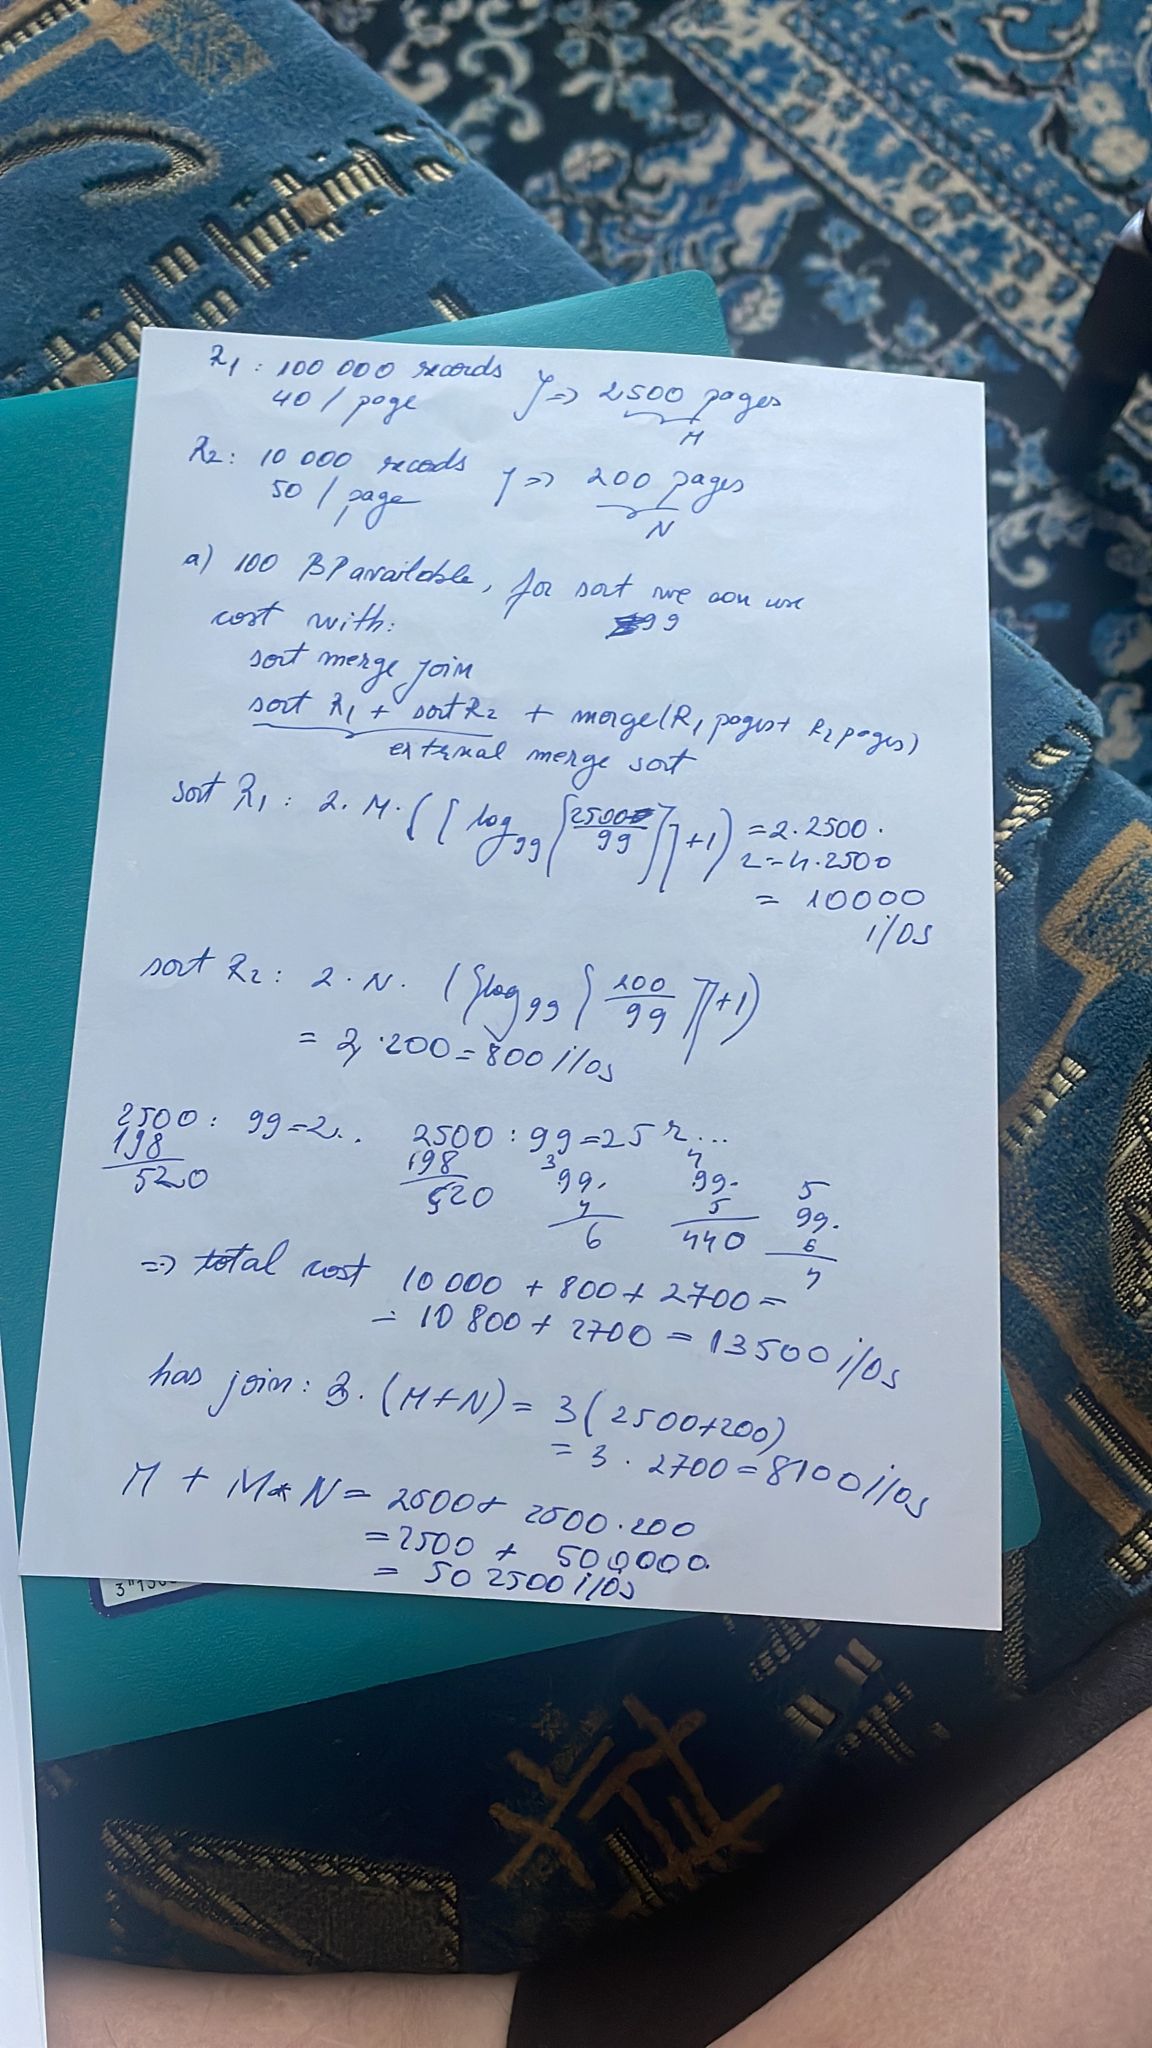 R1 : 100 000 records
40 / page } => 2500 pages
M
R2 : 10 000 records
50 / page } => 200 pages
N
a) 100 BP available, for sort we can use
99
cost with:
sort merge join
sort R1 + sort R2 + merge (R1 pages + R2 pages)
external merge sort
sort R1 : 2 . M . ( ⌈ log99 ⌈ 2500 / 99 ⌉ ⌉ + 1 ) = 2 . 2500 .
2 = 4 . 2500
= 10000
i/os
sort R2 : 2 . N . ( ⌈ log99 ⌈ 200 / 99 ⌉ ⌉ + 1 )
= 2 . 200 = 800 i/os
2500 : 99 = 2.. 2500 : 99 = 25 r...
198 198 99. 99. 5
520 520 4 5 99.
6 440 6
4
=> total cost 10 000 + 800 + 2700 =
= 10 800 + 2700 = 13500 i/os
has join : 3 . (M + N) = 3 ( 2500 + 200 )
= 3 . 2700 = 8100 i/os
M + M * N = 2500 + 2500 . 200
= 2500 + 500000
= 502500 i/os